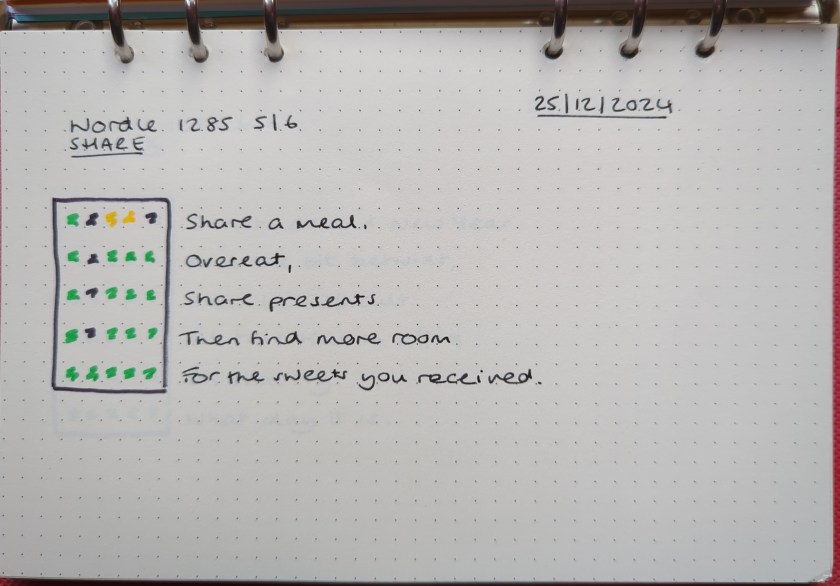 25/12/2024
Wordle 1285 5/6
SHARE
Share a meal,
Overeat,
Share presents
Then find more room
For the sweets you received.